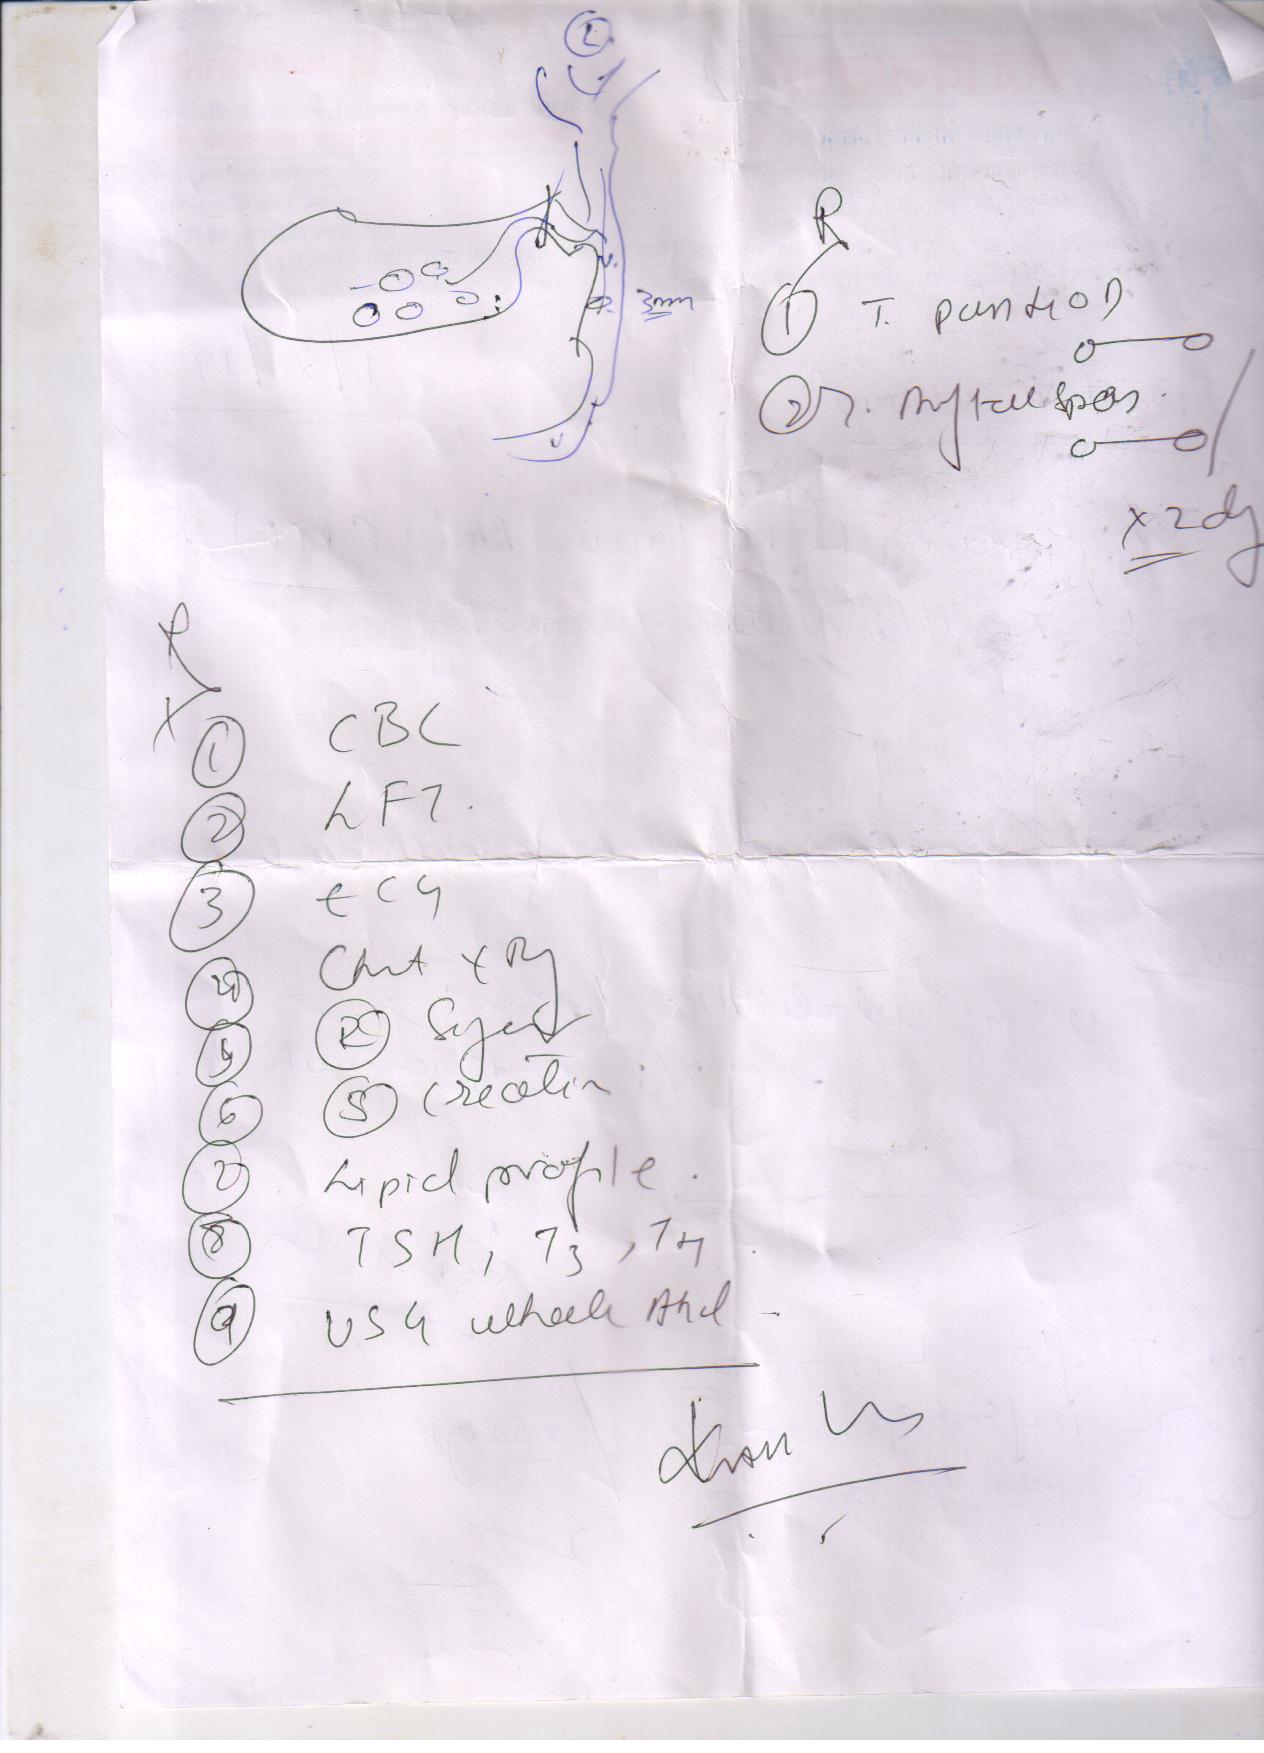 L
3mm
R
① T. Pantop D
② T. spas
x 2 dy
① CBC
② LFT.
③ ECG
④ Chest X Ry
⑤ Ⓡ Sugar
⑥ Ⓢ Creatin
⑦ Lipid profile.
⑧ TSH, T3, T4
⑨ USG whole Abd -